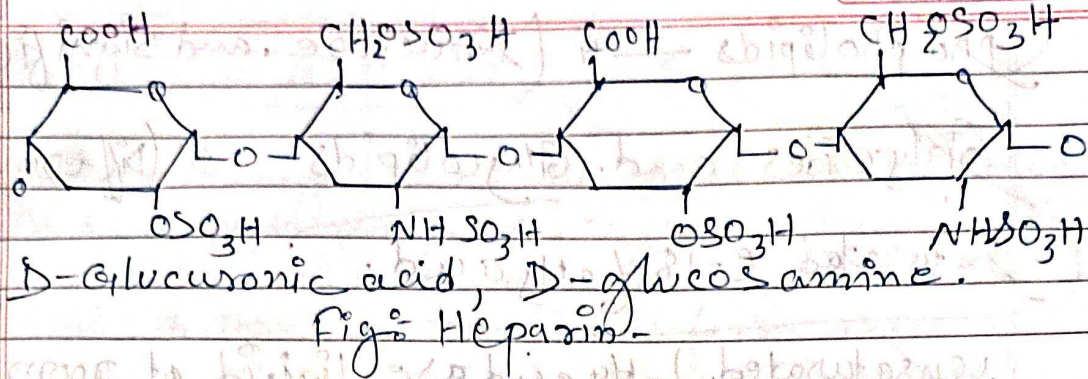 COOH CH2OSO3H COOH CH2OSO3H
O O O O
O O O O O
OSO3H NHSO3H OSO3H NHSO3H
D-Glucuronic acid, D-glucosamine.
Fig: Heparin-